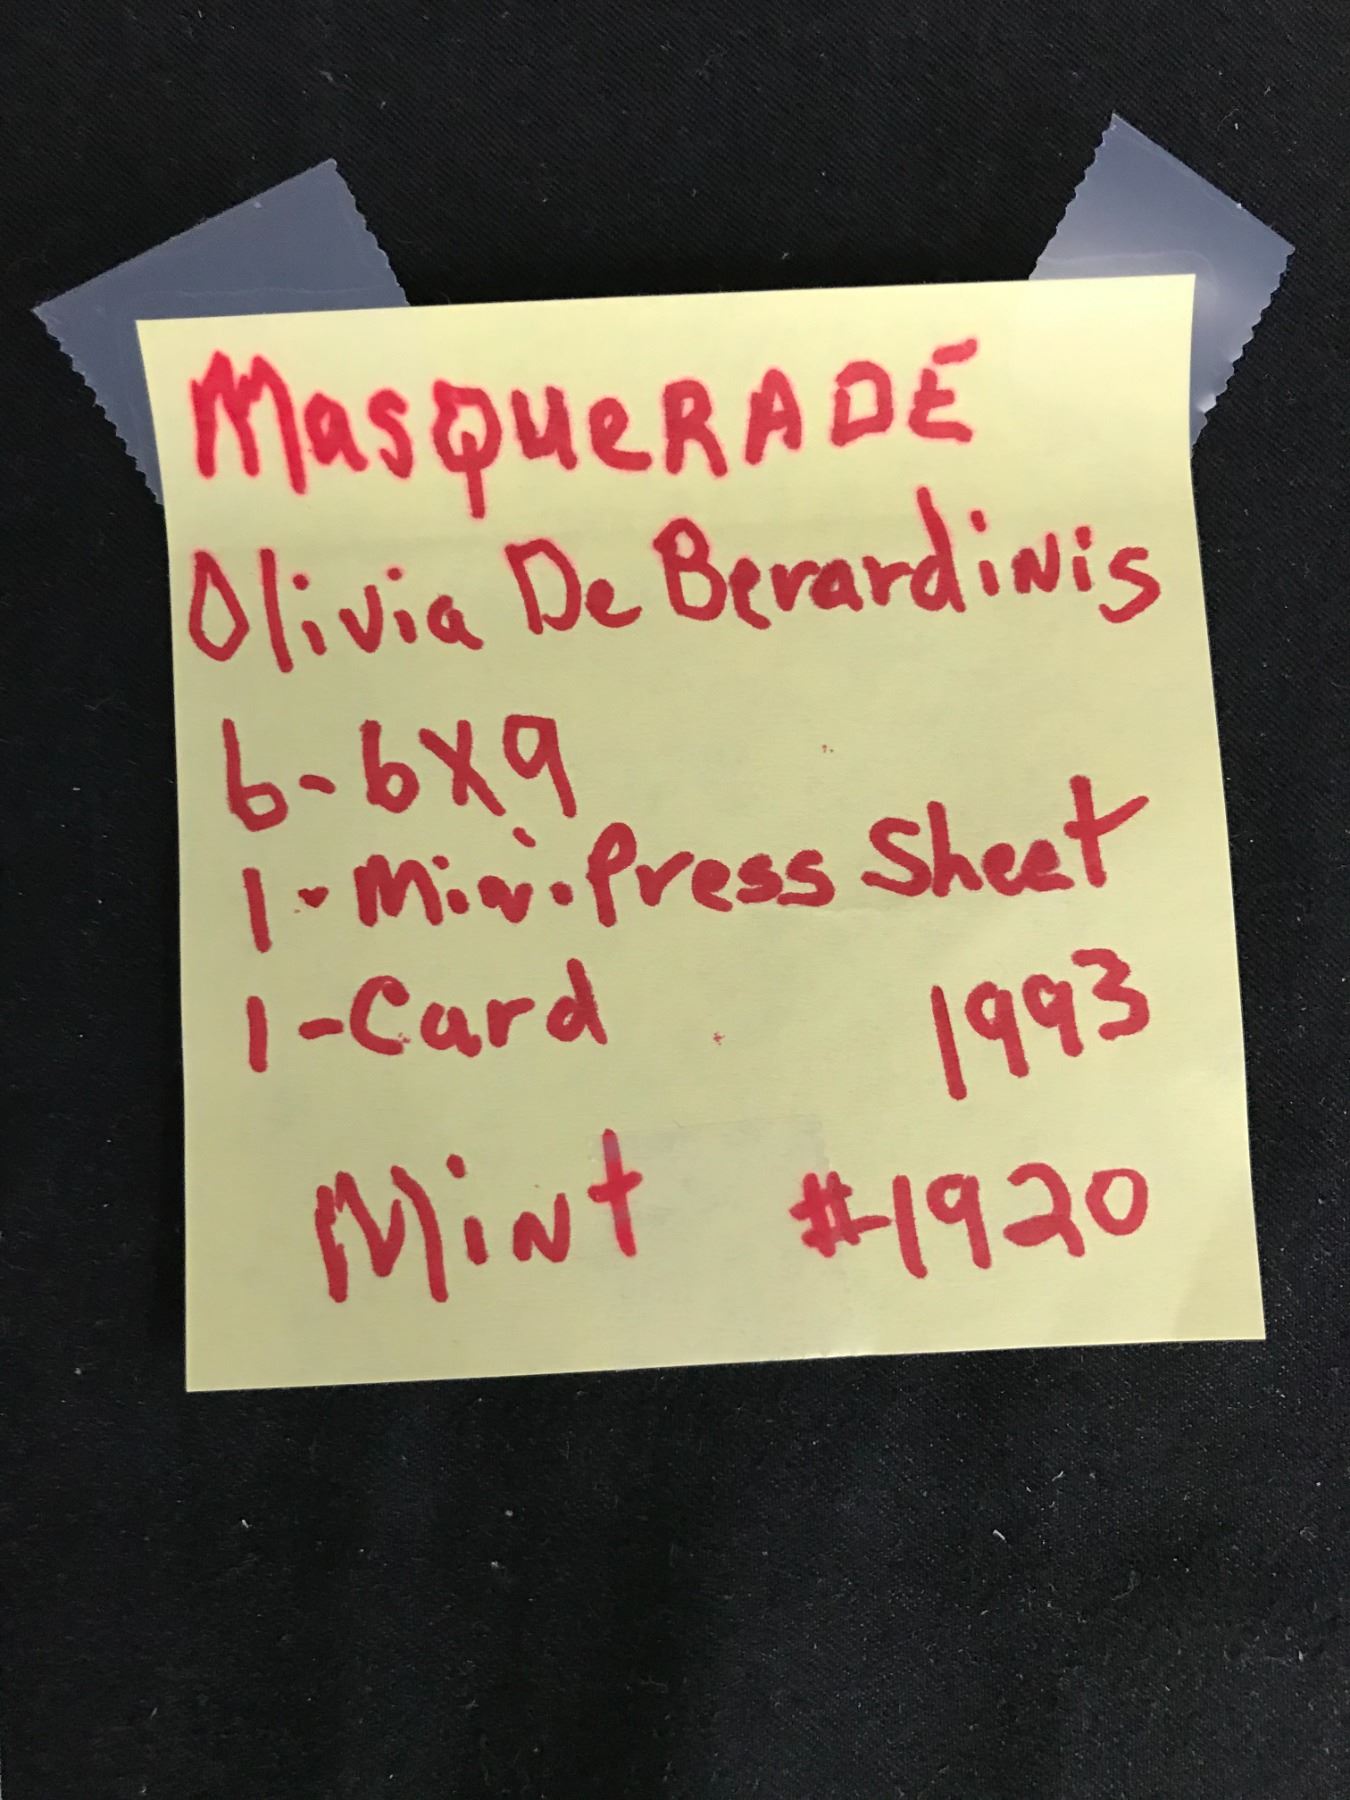 MasqueRADE
Olivia De Berardinis
6-6X9
1-Mini-Press Sheet
1-Card 1993
Mint #1920